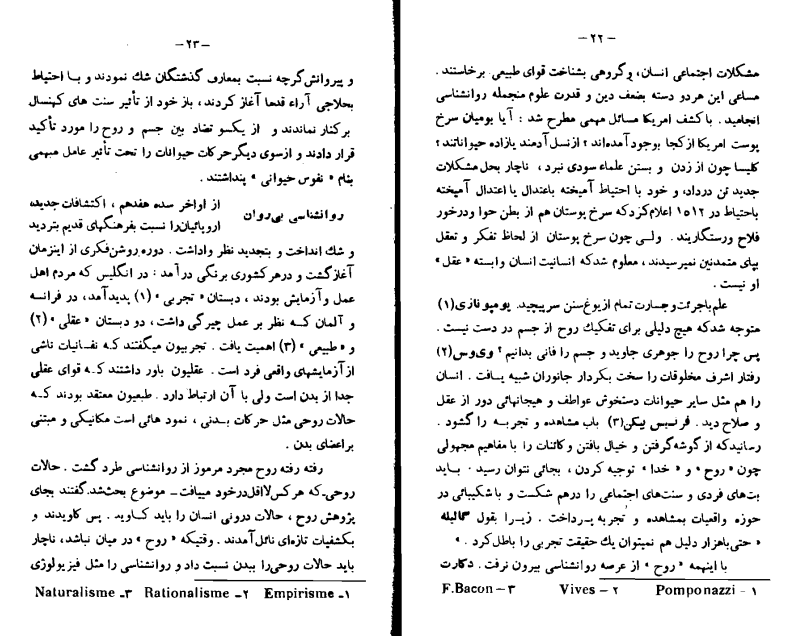 — ۲۲ —
مشکلات اجتماعی انسان، و گروهی بشناخت قوای طبیعی برخاستند .
مساعی این هر دو دسته بضعف دین و قدرت علوم منجمله روانشناسی
انجامید . با کشف امریکا مسائل مهمی مطرح شد : آیا بومیان سرخ
پوست امریکا از کجا بوجود آمده‌اند ؟ از نسل آدمند یا زاده حیواناتند ؟
کلیسا چون از زدن و بستن علماء سودی نبرد ، ناچار بحل مشکلات
جدید تن در داد، و خود با احتیاط آمیخته باعتدال یا اعتدال آمیخته
باحتیاط در ۱۵۱۲ اعلام کرد که سرخ پوستان هم از بطن حوا و درخور
فلاح و رستگاریند . ولی چون سرخ پوستان از لحاظ تفکر و تعقل
بپای متمدنین نمیرسیدند ، معلوم شد که انسانیت انسان وابسته « عقل »
او نیست .
علم با جرئت و جسارت تمام از یوغ سنن سرپیچید. پومپونازی (۱)
متوجه شد که هیچ دلیلی برای تفکیک روح از جسم در دست نیست .
پس چرا روح را جوهری جاوید و جسم را فانی بدانیم ؟ وی‌وس (۲)
رفتار اشرف مخلوقات را سخت بکردار جانوران شبیه یافت . انسان
را هم مثل سایر حیوانات دستخوش عواطف و هیجانهائی دور از عقل
و صلاح دید . فرنسیس بیکن (۳) باب مشاهده و تجربه را گشود .
رسانید که از گوشه گرفتن و خیال بافتن و کائنات را با مفاهیم مجهولی
چون « روح » و « خدا » توجیه کردن ، بجائی نتوان رسید . باید
بت‌های فردی و سنت‌های اجتماعی را درهم شکست و با شکیبائی در
حوزه واقعیات بمشاهده و تجربه پرداخت . زیرا بقول گالیله
« حتی با هزار دلیل هم نمیتوان یك حقیقت تجربی را باطل کرد . »
با اینهمه « روح » از عرصه روانشناسی بیرون نرفت . دکارت
۱ - Pomponazzi ۲ - Vives ۳ - F.Bacon
— ۲۳ —
و پیروانش گرچه نسبت بمعارف گذشتگان شك نمودند و با احتیاط
بحلاجی آراء قدما آغاز کردند ، باز خود از تأثیر سنت های کهنسال
برکنار نماندند و از یکسو تضاد بین جسم و روح را مورد تأکید
قرار دادند و ازسوی دیگر حرکات حیوانات را تحت تأثیر عامل مبهمی
بنام « نفوس حیوانی » پنداشتند .
روانشناسی بی‌روان
از اواخر سده هفدهم ، اکتشافات جدید،
اروپائیان را نسبت بفرهنگهای قدیم بتردید
و شك انداخت و بتجدید نظر واداشت . دوره روشن‌فکری از اینزمان
آغاز گشت و در هر کشوری برنگی درآمد : در انگلیس که مردم اهل
عمل و آزمایش بودند ، دبستان « تجربی » (۱) پدید آمد، در فرانسه
و آلمان که نظر بر عمل چیرگی داشت ، دو دبستان « عقلی » (۲)
و « طبیعی » (۳) اهمیت یافت . تجربیون میگفتند که نفسانیات ناشی
از آزمایشهای واقعی فرد است . عقلیون باور داشتند که قوای عقلی
جدا از بدن است ولی با آن ارتباط دارد . طبعیون معتقد بودند که
حالات روحی مثل حرکات بدنی ، نمود هائی است مکانیکی و مبتنی
براعضای بدن .
رفته رفته روح مجرد مرموز از روانشناسی طرد گشت . حالات
روحی - که هرکس لااقل درخود مییافت - موضوع بحث شد. گفتند بجای
پژوهش روح ، حالات درونی انسان را باید کاوید . پس کاویدند و
بکشفیات تازه‌ای نائل آمدند . وقتیکه « روح » در میان نباشد، ناچار
باید حالات روحی را ببدن نسبت داد و روانشناسی را مثل فیزیولوژی
۱- Empirisme ۲- Rationalisme ۳- Naturalisme